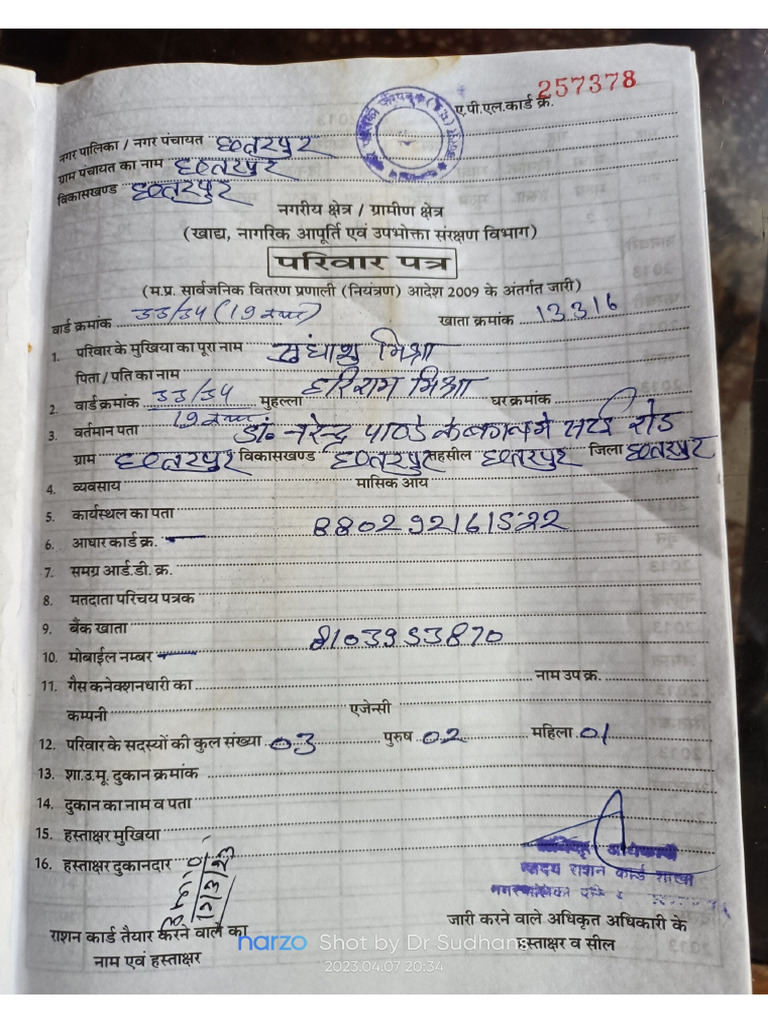 257378
ए.पी.एल.कार्ड क्र.
नगर पालिका / नगर पंचायत छतरपुर
ग्राम पंचायत का नाम छतरपुर
विकासखण्ड छतरपुर
नगरीय क्षेत्र / ग्रामीण क्षेत्र
(खाद्य, नागरिक आपूर्ति एवं उपभोक्ता संरक्षण विभाग)
परिवार पत्र
(म.प्र. सार्वजनिक वितरण प्रणाली (नियंत्रण) आदेश 2009 के अंतर्गत जारी)
वार्ड क्रमांक 33/34 (19 खाता क्रमांक 13316
1. परिवार के मुखिया का पूरा नाम सुधांशु मिश्रा
पिता / पति का नाम हरिराम मिश्रा
2. वार्ड क्रमांक 33/34 मुहल्ला घर क्रमांक
19
3. वर्तमान पता डॉ. नरेन्द्र पाण्डे के बगल में सटई रोड
ग्राम छतरपुर विकासखण्ड छतरपुर तहसील छतरपुर जिला छतरपुर
4. व्यवसाय मासिक आय
5. कार्यस्थल का पता
6. आधार कार्ड क्र. 880292161522
7. समग्र आई.डी. क्र.
8. मतदाता परिचय पत्रक
9. बैंक खाता
10. मोबाईल नम्बर 8103953870
11. गैस कनेक्शनधारी का नाम उप क्र.
कम्पनी एजेन्सी
12. परिवार के सदस्यों की कुल संख्या 03 पुरुष 02 महिला 01
13. शा.उ.मू. दुकान क्रमांक
14. दुकान का नाम व पता
15. हस्ताक्षर मुखिया
16. हस्ताक्षर दुकानदार
राशन कार्ड शाखा
राशन कार्ड तैयार करने वाले का
नाम एवं हस्ताक्षर
जारी करने वाले अधिकृत अधिकारी के
हस्ताक्षर व सील
narzo Shot by Dr Sudhanshu
2023.04.07 20:34